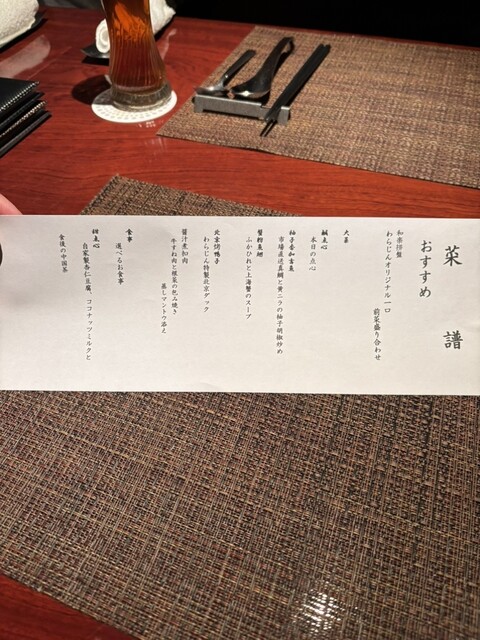 菜譜
おすすめ
和楽拼盤
わらじんオリジナル一口
前菜盛り合わせ
大菜
鹹点心
本日の点心
柚子香和吉魚
市場直送真鯛と黄ニラの柚子胡椒炒め
蟹粉魚翅
ふかひれと上海蟹のスープ
北京烤鴨子
わらじん特製北京ダック
醤汁煮扣肉
牛すね肉と根菜の包み焼き
蒸しマントウ添え
食事
選べるお食事
甜点心
自家製杏仁豆腐、ココナッツミルクと
食後の中国茶